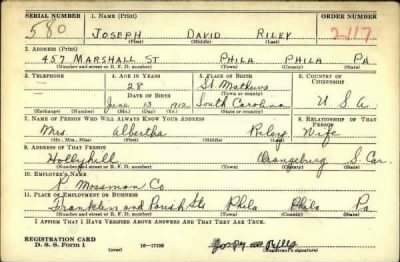 SERIAL NUMBER 1. NAME (Print) ORDER NUMBER
580 JOSEPH DAVID RILEY 2117
(First) (Middle) (Last)
2. ADDRESS (Print)
457 MARSHALL ST PHILA PHILA PA
(Number and street or R. F. D. number) (Town) (County) (State)
3. TELEPHONE 4. AGE IN YEARS 5. PLACE OF BIRTH 6. COUNTRY OF CITIZENSHIP
28 St. Mathews
DATE OF BIRTH (Town or county)
June 13 1912 South Carolina U.S.A.
(Exchange) (Number) (Mo.) (Day) (Yr.) (State or country)
7. NAME OF PERSON WHO WILL ALWAYS KNOW YOUR ADDRESS 8. RELATIONSHIP OF THAT PERSON
Mrs Albertha Riley Wife
(Mr., Mrs., Miss) (First) (Middle) (Last)
9. ADDRESS OF THAT PERSON
Hollyhill Orangeburg S. Car.
(Number and street or R. F. D. number) (Town) (County) (State)
10. EMPLOYER'S NAME
P Mossman Co
11. PLACE OF EMPLOYMENT OR BUSINESS
Franklin and Parish Sts Phila Phila Pa
(Number and street or R. F. D. number) (Town) (County) (State)
I AFFIRM THAT I HAVE VERIFIED ABOVE ANSWERS AND THAT THEY ARE TRUE.
REGISTRATION CARD
D. S. S. Form 1 (over) 16—17105 (Registrant's signature)